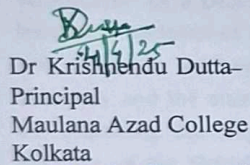 Dutta
Dr Krishnendu Dutta–
Principal
Maulana Azad College
Kolkata